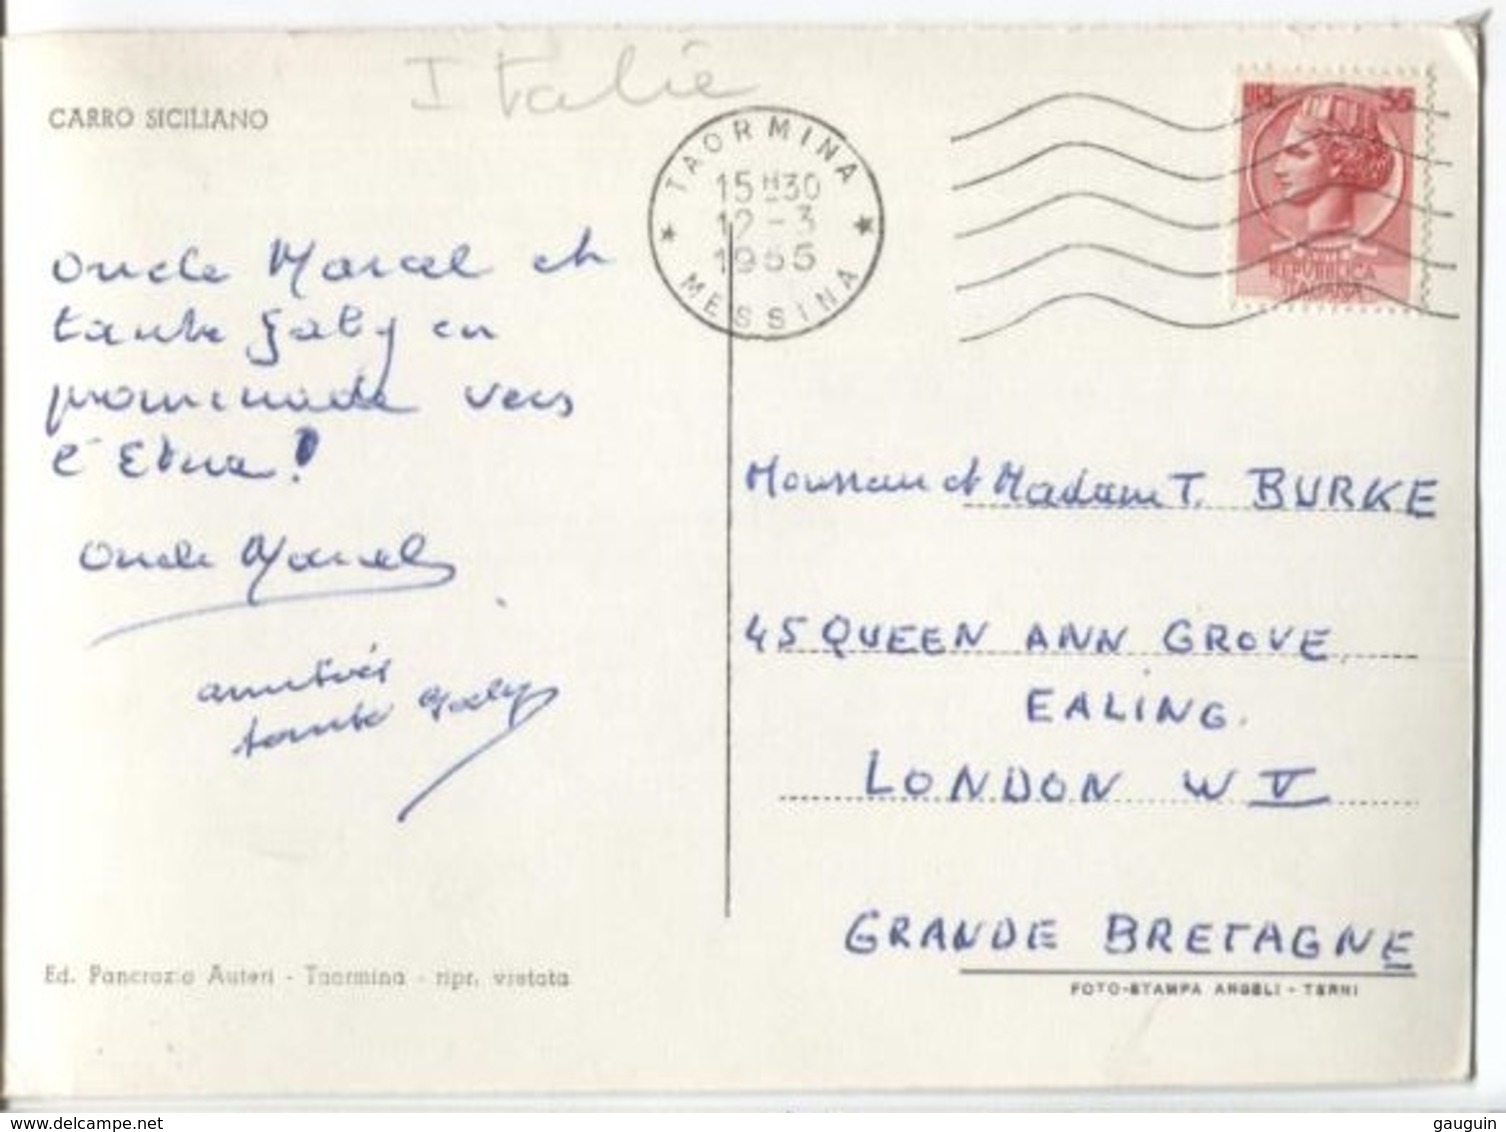 Italie
CARRO SICILIANO
TAORMINA
15 H 30
12-3
1955
MESSINA
LIRE 35
REPUBBLICA
ITALIANA
Oncle Marcel et
tante Gaby en
promenade vers
l'Etna!
Oncle Marcel
amitiés
tante Gaby
Monsieur et Madame T. BURKE
45 QUEEN ANN GROVE
EALING.
LONDON W V
GRANDE BRETAGNE
Ed. Pancrazio Auteri - Taormina - ripr. vietata
FOTO-STAMPA ANGELI - TERNI
gauguin